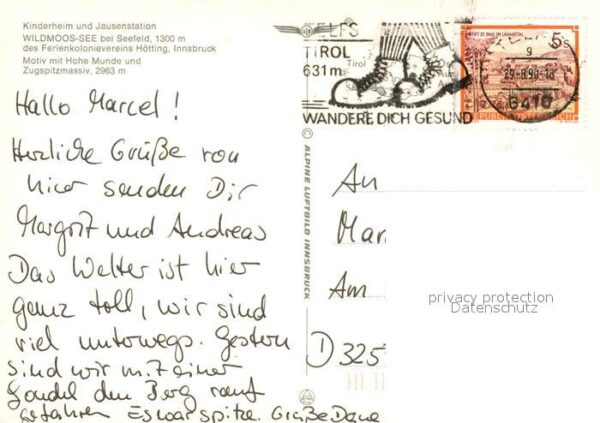 Kinderheim und Jausenstation
WILDMOOS-SEE bei Seefeld, 1300 m
des Ferienkolonievereins Hötting, Innsbruck
Motiv mit Hohe Munde und
Zugspitzmassiv, 2963 m
Hallo Marcel!
Herzliche Grüße von
hier senden Dir
Margrit und Andreas
Das Wetter ist hier
ganz toll, wir sind
viel unterwegs. Gestern
sind wir mit einer
Gondel den Berg rauf
gefahren Es war spitze. Grüße Dana
© ALPINE LUFTBILD INNSBRUCK
TELFS
TIROL
631m
Tirol
WANDERE DICH GESUND
STIFT ST. PAUL IM LAVANTTAL
5s
REPUBLIK ÖSTERREICH
TELFS
9
6410
An
Mar
Am
D 325
privacy protection
Datenschutz